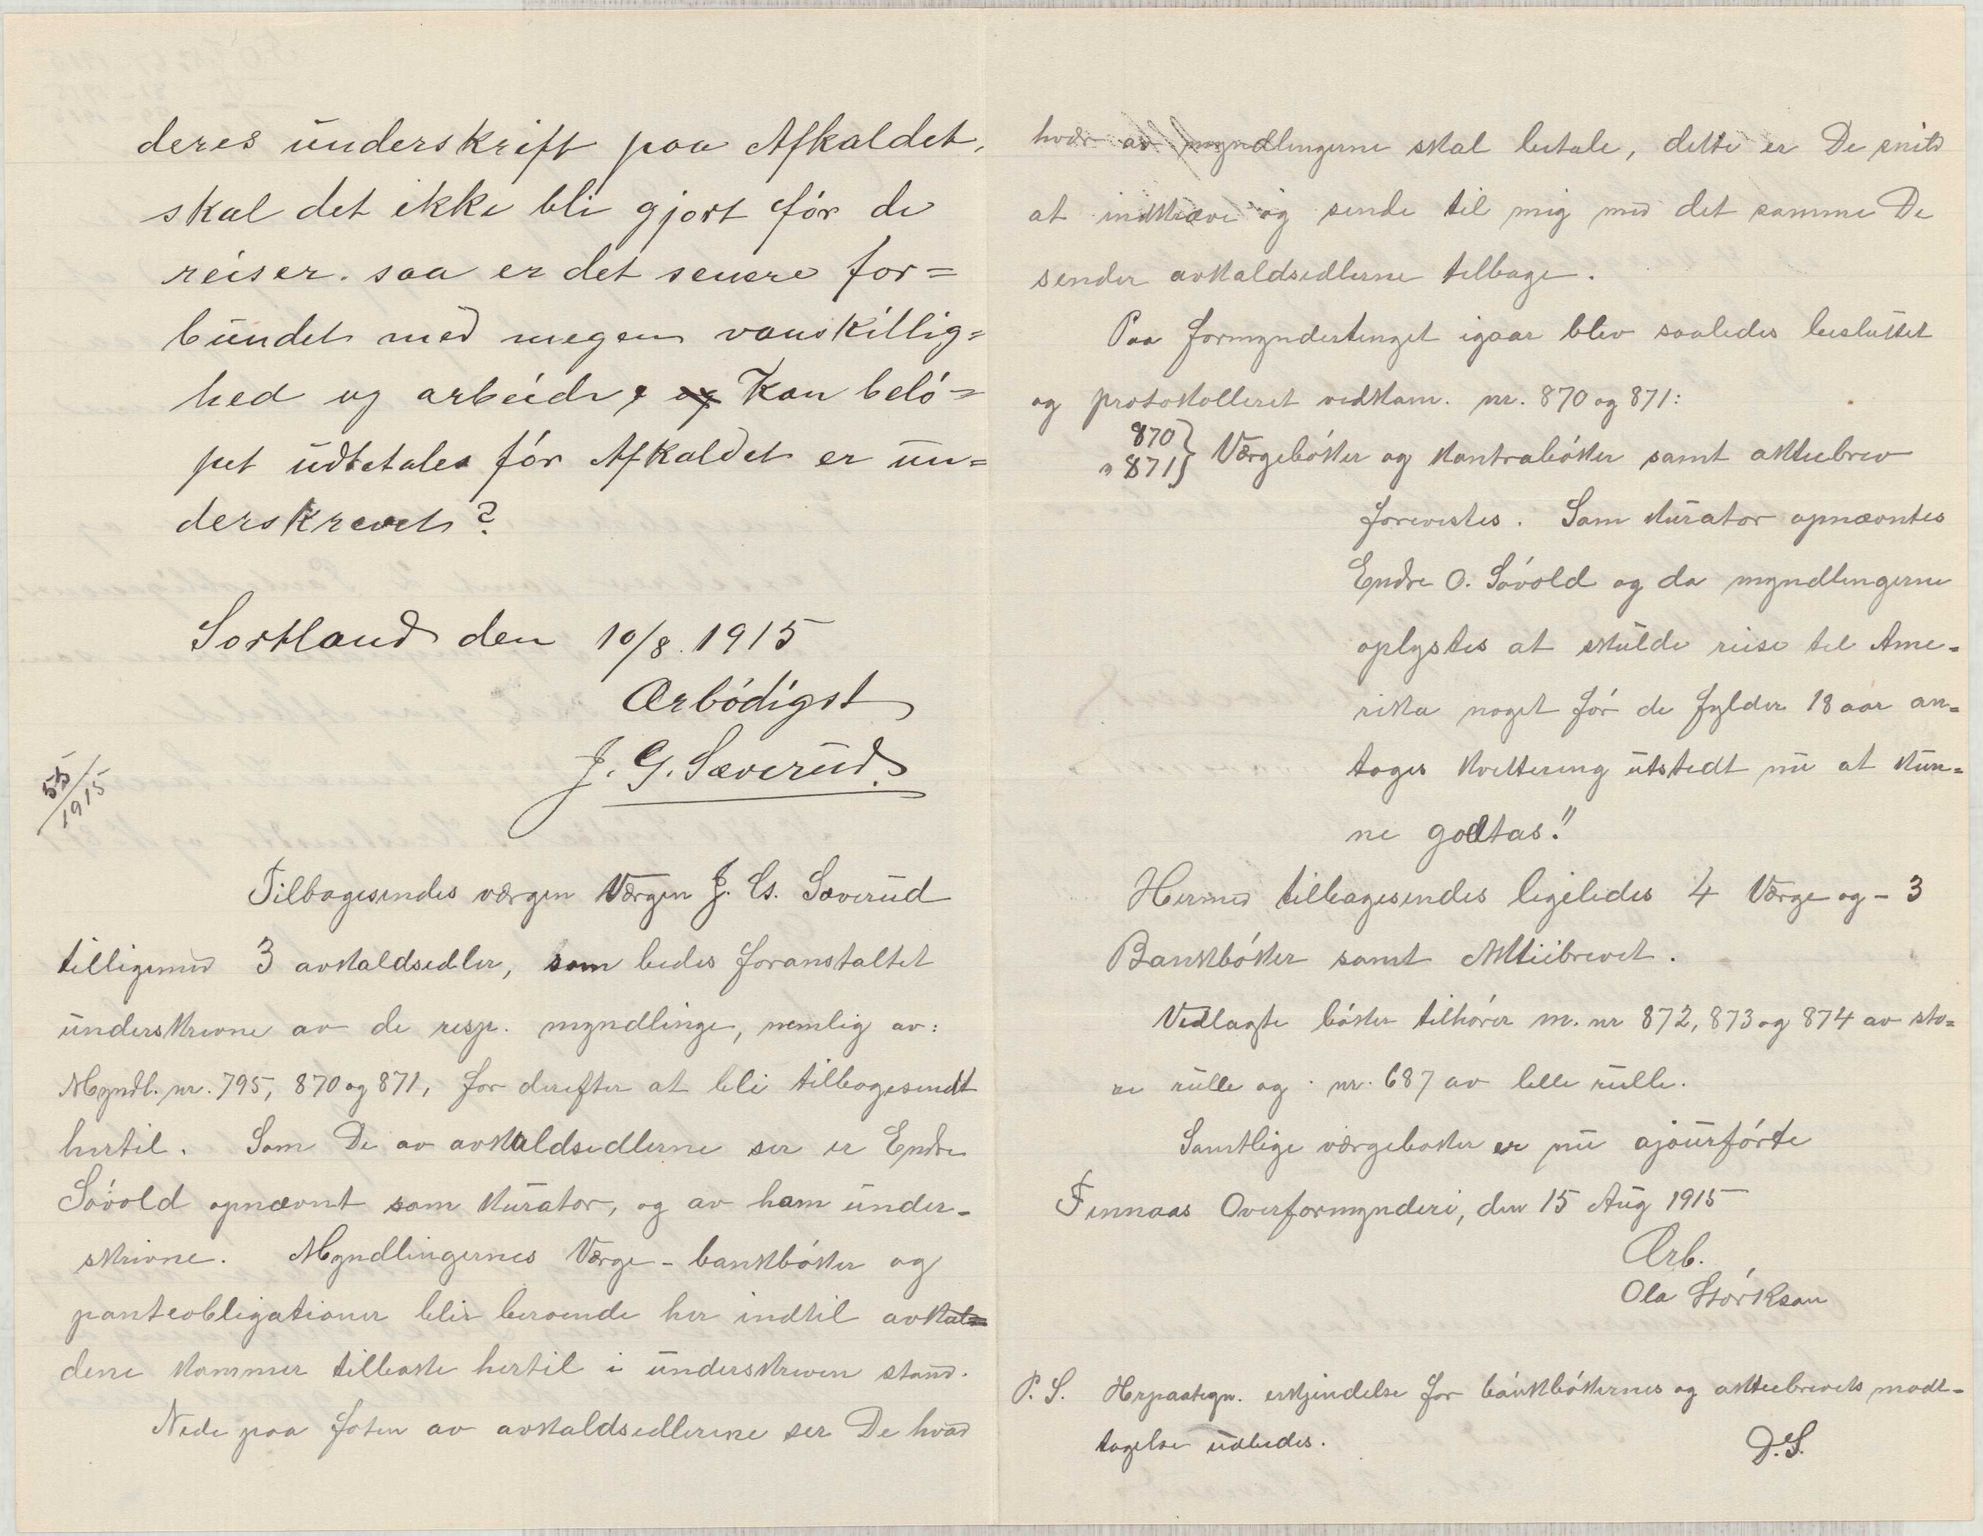 deres underskrift paa Afkaldet,
skal det ikke bli gjort før de
reiser. saa er det senere for=
bundet med megen vanskillig=
hed og arbeide, og Kan belø=
pet udbetales før Afkaldet er un=
derskrevet?
Sortland den 10/8. 1915
Ærbødigst
J. G. Sæverud.
55/1915
Tilbagesendes værgen Værgen J. G. Sæverud
tilligemed 3 avkaldsedler, som bedes foranstaltet
underskrevne av de resp. myndlinge, nemlig av:
Myndl. nr. 795, 870 og 871, for derefter at bli tilbagesendt
hertil. Som De av avkaldsedlerne ser er Endre
Søvold opnævnt som kurator, og av ham under-
skrivne. Myndlingernes Værge- bankbøker og
panteobligationer blir beroende her indtil avkal=
dene kommer tilbake hertil i underskreven stand.
Nede paa foten av avkaldsedlerne ser De hvad
hvær av myndlingerne skal betale, dette er De snild
at indkræve og sende til mig med det samme De
sender avkaldsedlerne tilbage.
Paa formyndertinget igaar blev saaledes besluttet
og protokolleret vedkom. nr. 870 og 871:
870
" 871} Værgebøker og kontrabøker samt aktiebrev
forevistes. Som kurator opnævntes
Endre O. Søvold og da myndlingerne
oplystes at skulde reise til Ame=
rika noget før de fylder 18 aar an=
toges kvittering utstedt nu at kun=
ne godtas!"
Hermed tilbagesendes ligeledes 4 Værge og - 3
Bankbøker samt Aktiebrevet.
Vedlagte bøker tilhører m. nr 872, 873 og 874 av sto=
re rulle og nr. 687 av lille rulle.
Samtlige værgebøker er nu ajourførte
Finnaas Overformynderi, den 15 Aug 1915
Ærb.
Ola Størkson
P. S. Herpaategn. erkjendelse for bankbøkernes og aktiebrevets modt-
tagelse udbedes.
D.S.